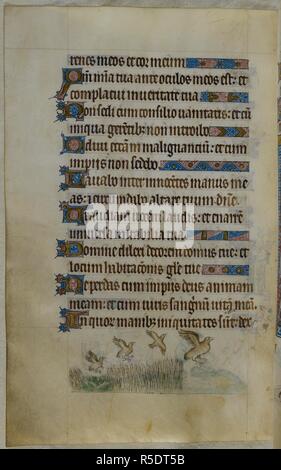 renes meos et cor meum
Qm mia tua ante oculos meos est: et
complacui in veritate tua
Non sedi cum consilio vanitatis: et cū
iniqua gerentib: non introibo
Odivi ecclām malignanciū: et cum
impiis non sedebo
Lavabo inter innocentes manus me
as: et circūdabo altare tuum dne
Ut audiam vocem laudis: et enarrē
universa mirabilia tua
Domine dilexi decorem domus tue: et
locum habitacōnis glē tue
Ne perdas cum impiis deus animam
meam: et cum viris sangnū vitā meā
In quor manib: iniquitates sūt: dex
alamy
alamy
R5DT5B
www.alamy.com